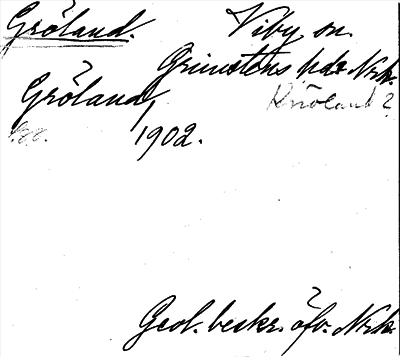 Gröland. Viby sn
Grimstens hd Nrk.
Gröland, Knöland?
1902.
Geol. beskr. öfv. Nrk.